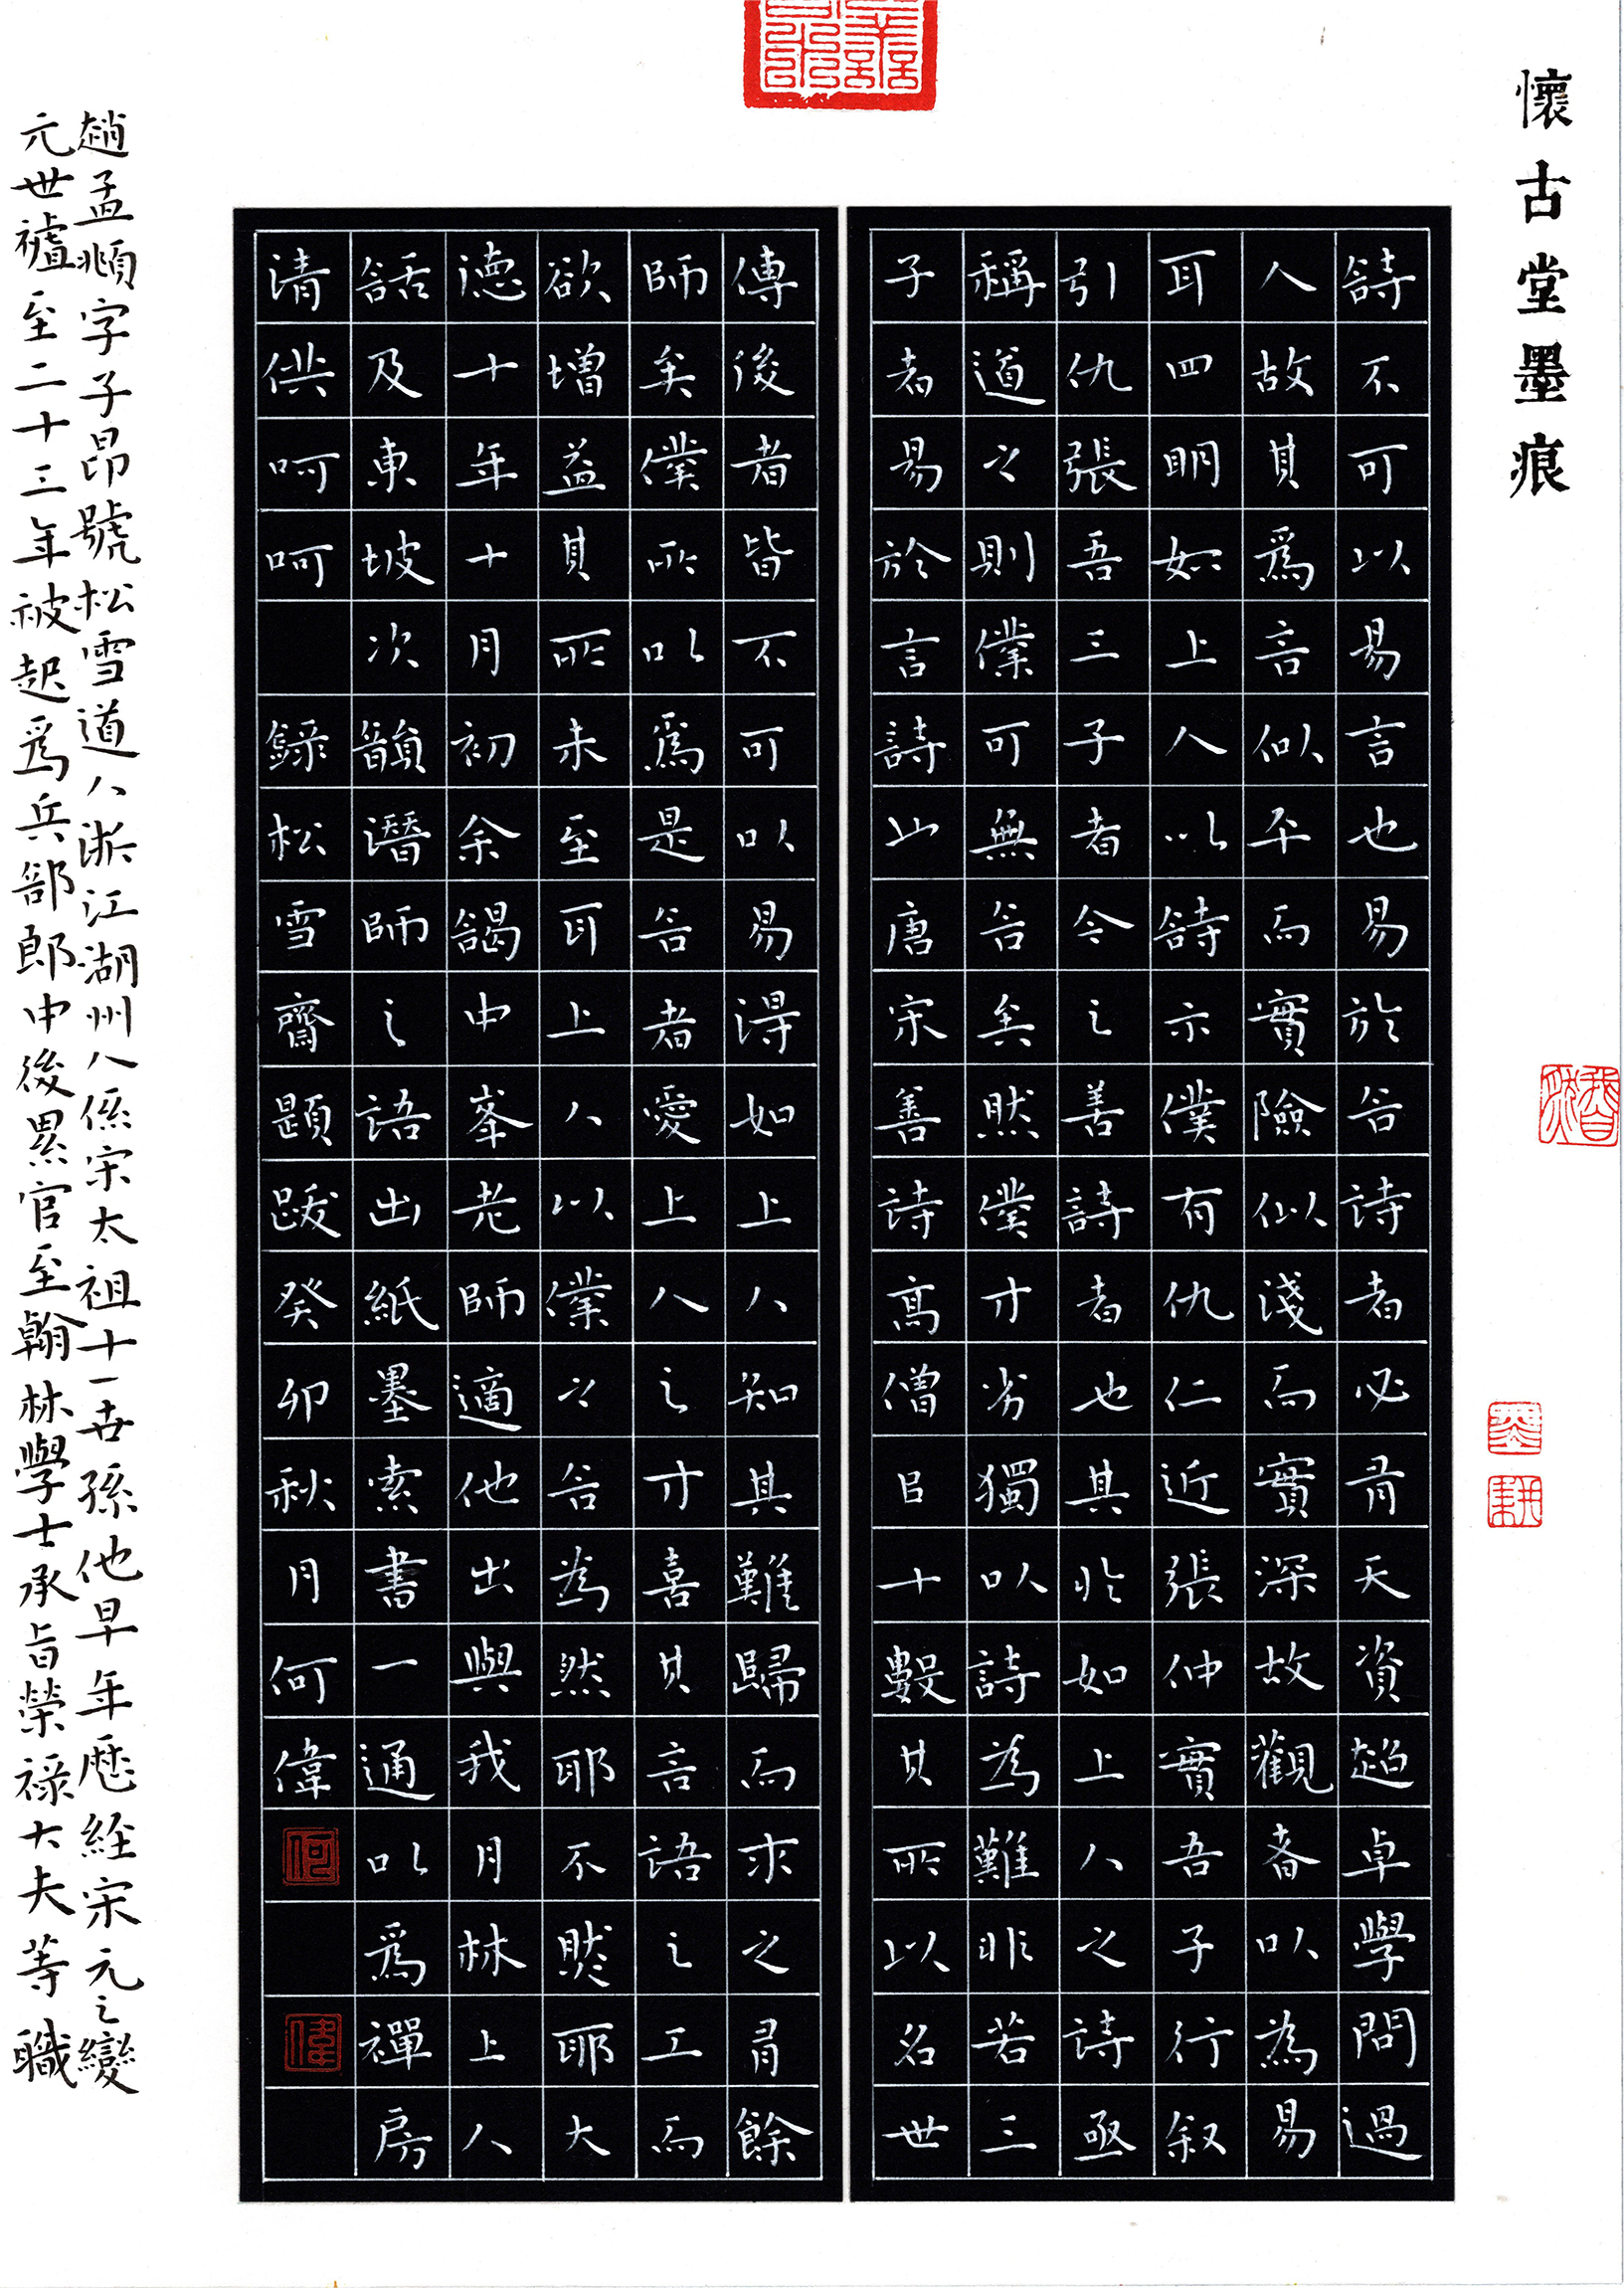 懷古堂墨痕
詩不可以易言也易於言詩者必有天資超卓學問過
人故其爲言似平而實險似淺而實深故觀者以為易
耳四明如上人以詩示僕有仇仁近張仲實吾子行叙
引仇張吾三子者今之善詩者也其於如上人之詩亟
稱道之則僕可無言矣然僕才劣獨以詩為難非若三
子者易於言詩也唐宋善詩高僧㠯十數其所以名世
傳後者皆不可以易得如上人知其難歸而求之有餘
師矣僕所以爲是言者愛上人之才喜其言語之工而
欲增益其所未至耳上人以僕之言為然耶不然耶大
德十年十月初余謁中峯老師適他出與我月林上人
話及東坡次韻潛師之語出紙墨索書一通以爲禪房
清供呵呵 錄松雪齋題跋癸卯秋月何偉
何
偉
趙孟頫字子昂號松雪道人浙江湖州人係宋太祖十一世孫他早年歷經宋元之變
元世祖至二十三年被起爲兵部郎中後累官至翰林學士承旨榮祿大夫等職
墨
耕